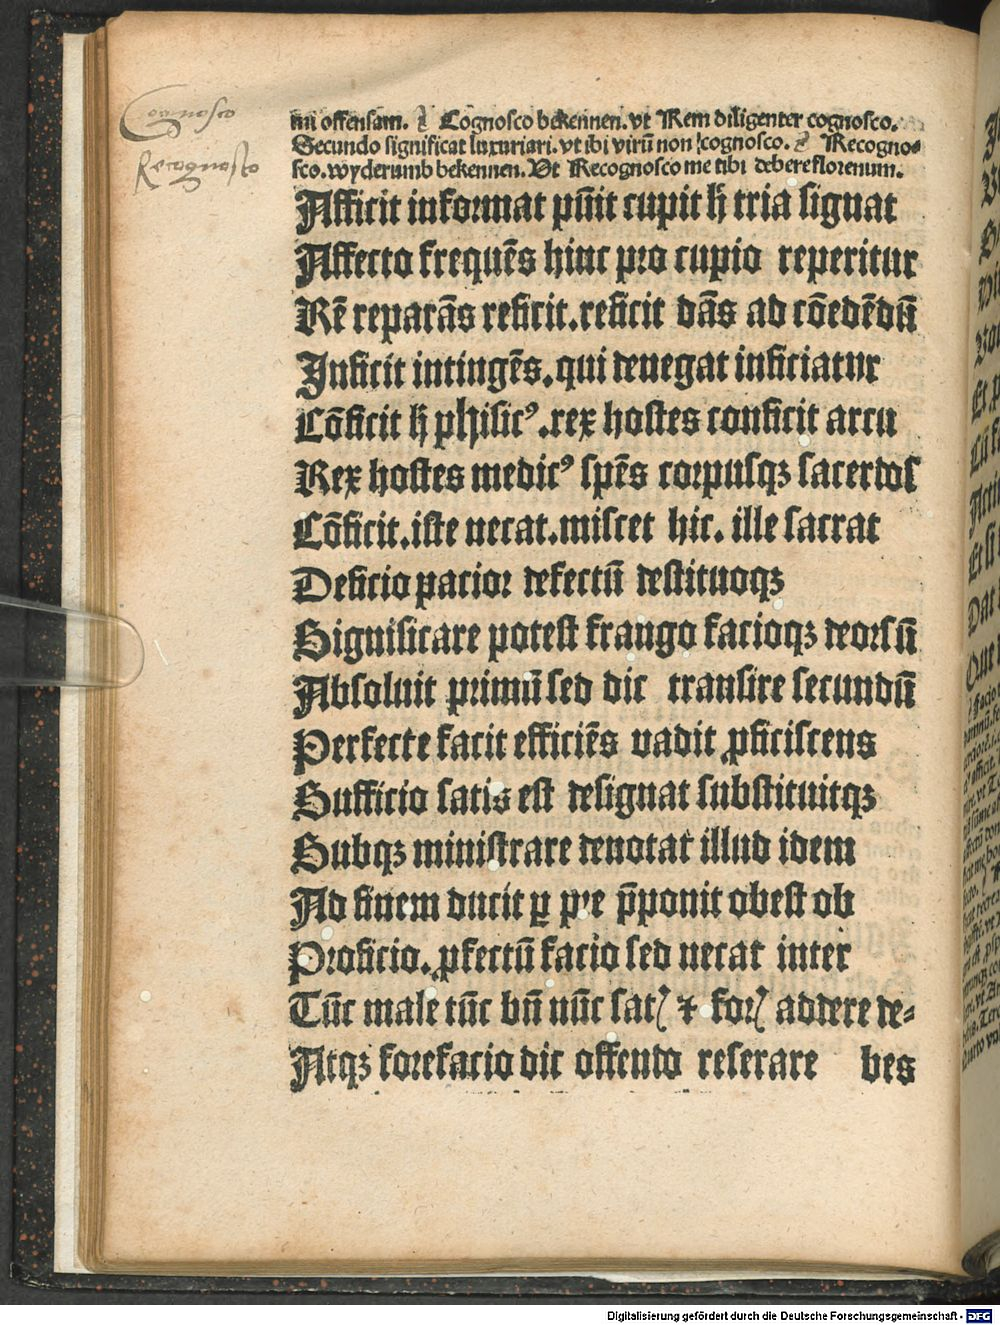 Cognosco
Recognosco
mi offensam. ⁊ Cognosco bekennen. vt Rem diligenter cognosco.
Secundo significat luxuriari. vt ibi virū non cognosco. ⁊ Recogno⸗
sco. wyderumb bekennen. Vt Recognosco me tibi debere florenum.
Afficit informat pūit cupit ħ tria signat
Affecto frequēs hinc pro cupio reperitur
Rē reparās reficit. reficit dās ad cōedēdū
Inficit intingēs. qui denegat inficiatur
Cōficit ħ phisicꝰ. rex hostes conficit arcu
Rex hostes medicꝰ spēs corpusqꝫ sacerdos
Cōficit. iste necat. miscet hic. ille sacrat
Deficio pacior defectū destituoqꝫ
Significare potest frango facioqꝫ deorsū
Absoluit primū sed dic transire secundū
Perfecte facit efficiēs vadit ꝓficiscens
Sufficio satis est designat substituitqꝫ
Subqꝫ ministrare denotat illud idem
Ad finem ducit ꝑ pre p̄ponit obest ob
Proficio. ꝓfectū facio sed necat inter
Tūc male tūc bn̄ nūc satꝭ ⁊ forꝭ addere de⸗
Atqꝫ forefacio dic offendo reserare bes
Digitalisierung gefördert durch die Deutsche Forschungsgemeinschaft - DFG